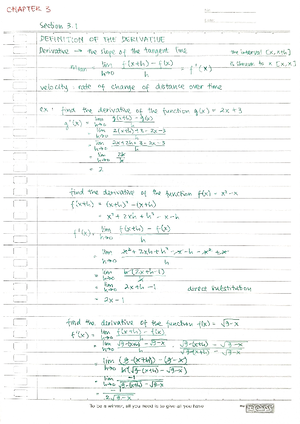 CHAPTER 3
Section 3.1
DEFINITION OF THE DERIVATIVE
Derivative → the slope of the tangent line
the interval [x, x+h]
m tan = lim h→0 f(x+h) - f(x) / h = f'(x)
is shrunk to x [x, x]
velocity : rate of change of distance over time
ex : find the derivative of the function g(x) = 2x + 3
g'(x) = lim h→0 g(x+h) - g(x) / h
= lim h→0 2(x+h) + 3 - 2x - 3 / h
= lim h→0 2x + 2h + 3 - 2x - 3 / h
= lim h→0 2h / h
= 2
find the derivative of the function f(x) = x² - x
f(x+h) = (x+h)² - (x+h)
= x² + 2xh + h² - x - h
f'(x) = lim h→0 f(x+h) - f(x) / h
= lim h→0 x² + 2xh + h² - x - h - x² + x / h
= lim h→0 h(2x + h - 1) / h
= lim h→0 2x + h - 1 direct substitution
= 2x - 1
find the derivative of the function f(x) = √9-x
f'(x) = lim h→0 f(x+h) - f(x) / h
= lim h→0 √9-(x+h) - √9-x / h · √9-(x+h) + √9-x / √9-(x+h) + √9-x
= lim h→0 (9-(x+h)) - (9-x) / h(√9-(x+h) + √9-x)
= lim h→0 -1 / √9-(x+h) + √9-x
= -1 / 2√9-x
To be a winner, all you need to give all you have